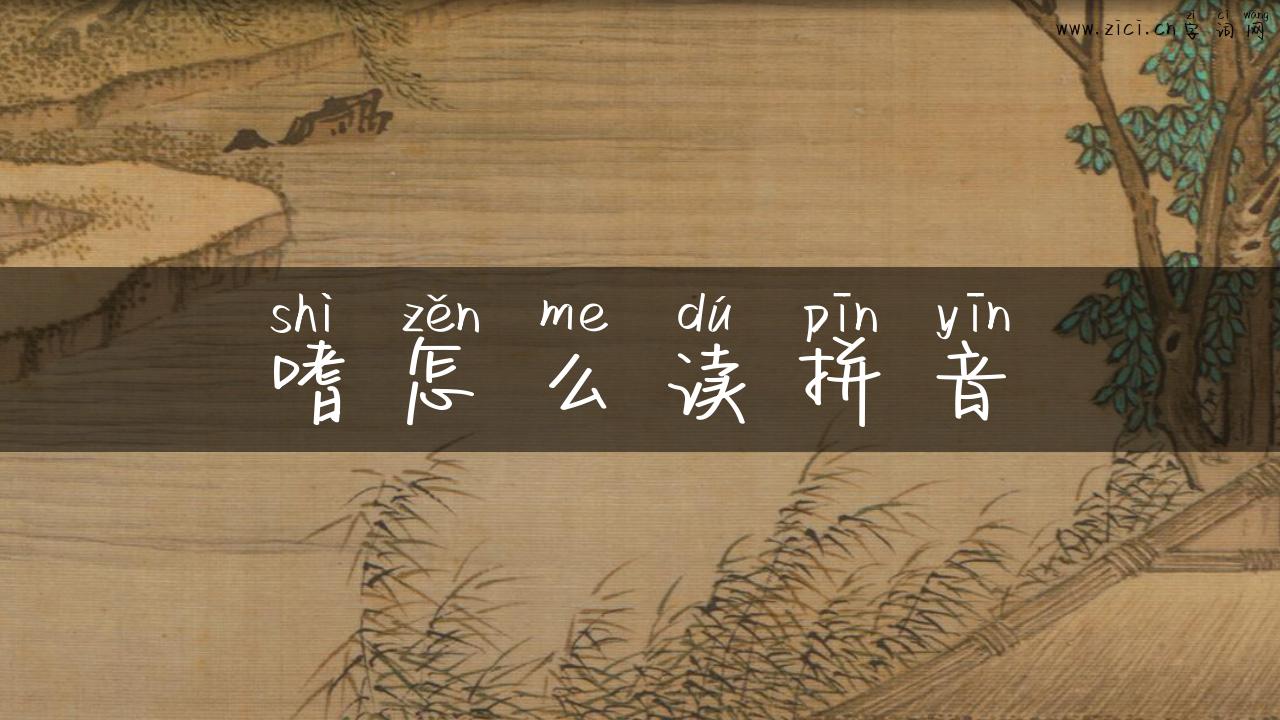 zì cí wǎng
www.zici.cn字词网
shì zěn me dú pīn yīn
嗜怎么读拼音